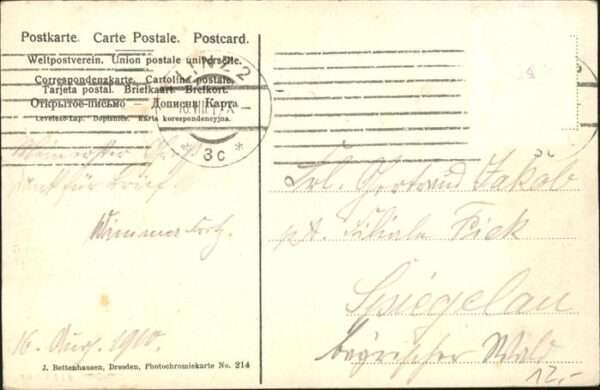 Postkarte. Carte Postale. Postcard.
Weltpostverein. Union postale universelle.
Correspondenzkarte. Cartolina postale.
Tarjeta postal. Briefkaart. Brefkort.
Открытое письмо — Дописна Карта
Levelező-Lap. Dopisnice. Karta korespondencyjna.
2
* 3c *
für Brief.
16. Aug. 1910.
J. Bettenhausen, Dresden, Photochromiekarte No. 214
Frl. Gertraud Jakob
Filiale Fick
Spiegelau
bayrischer Wald
12.-